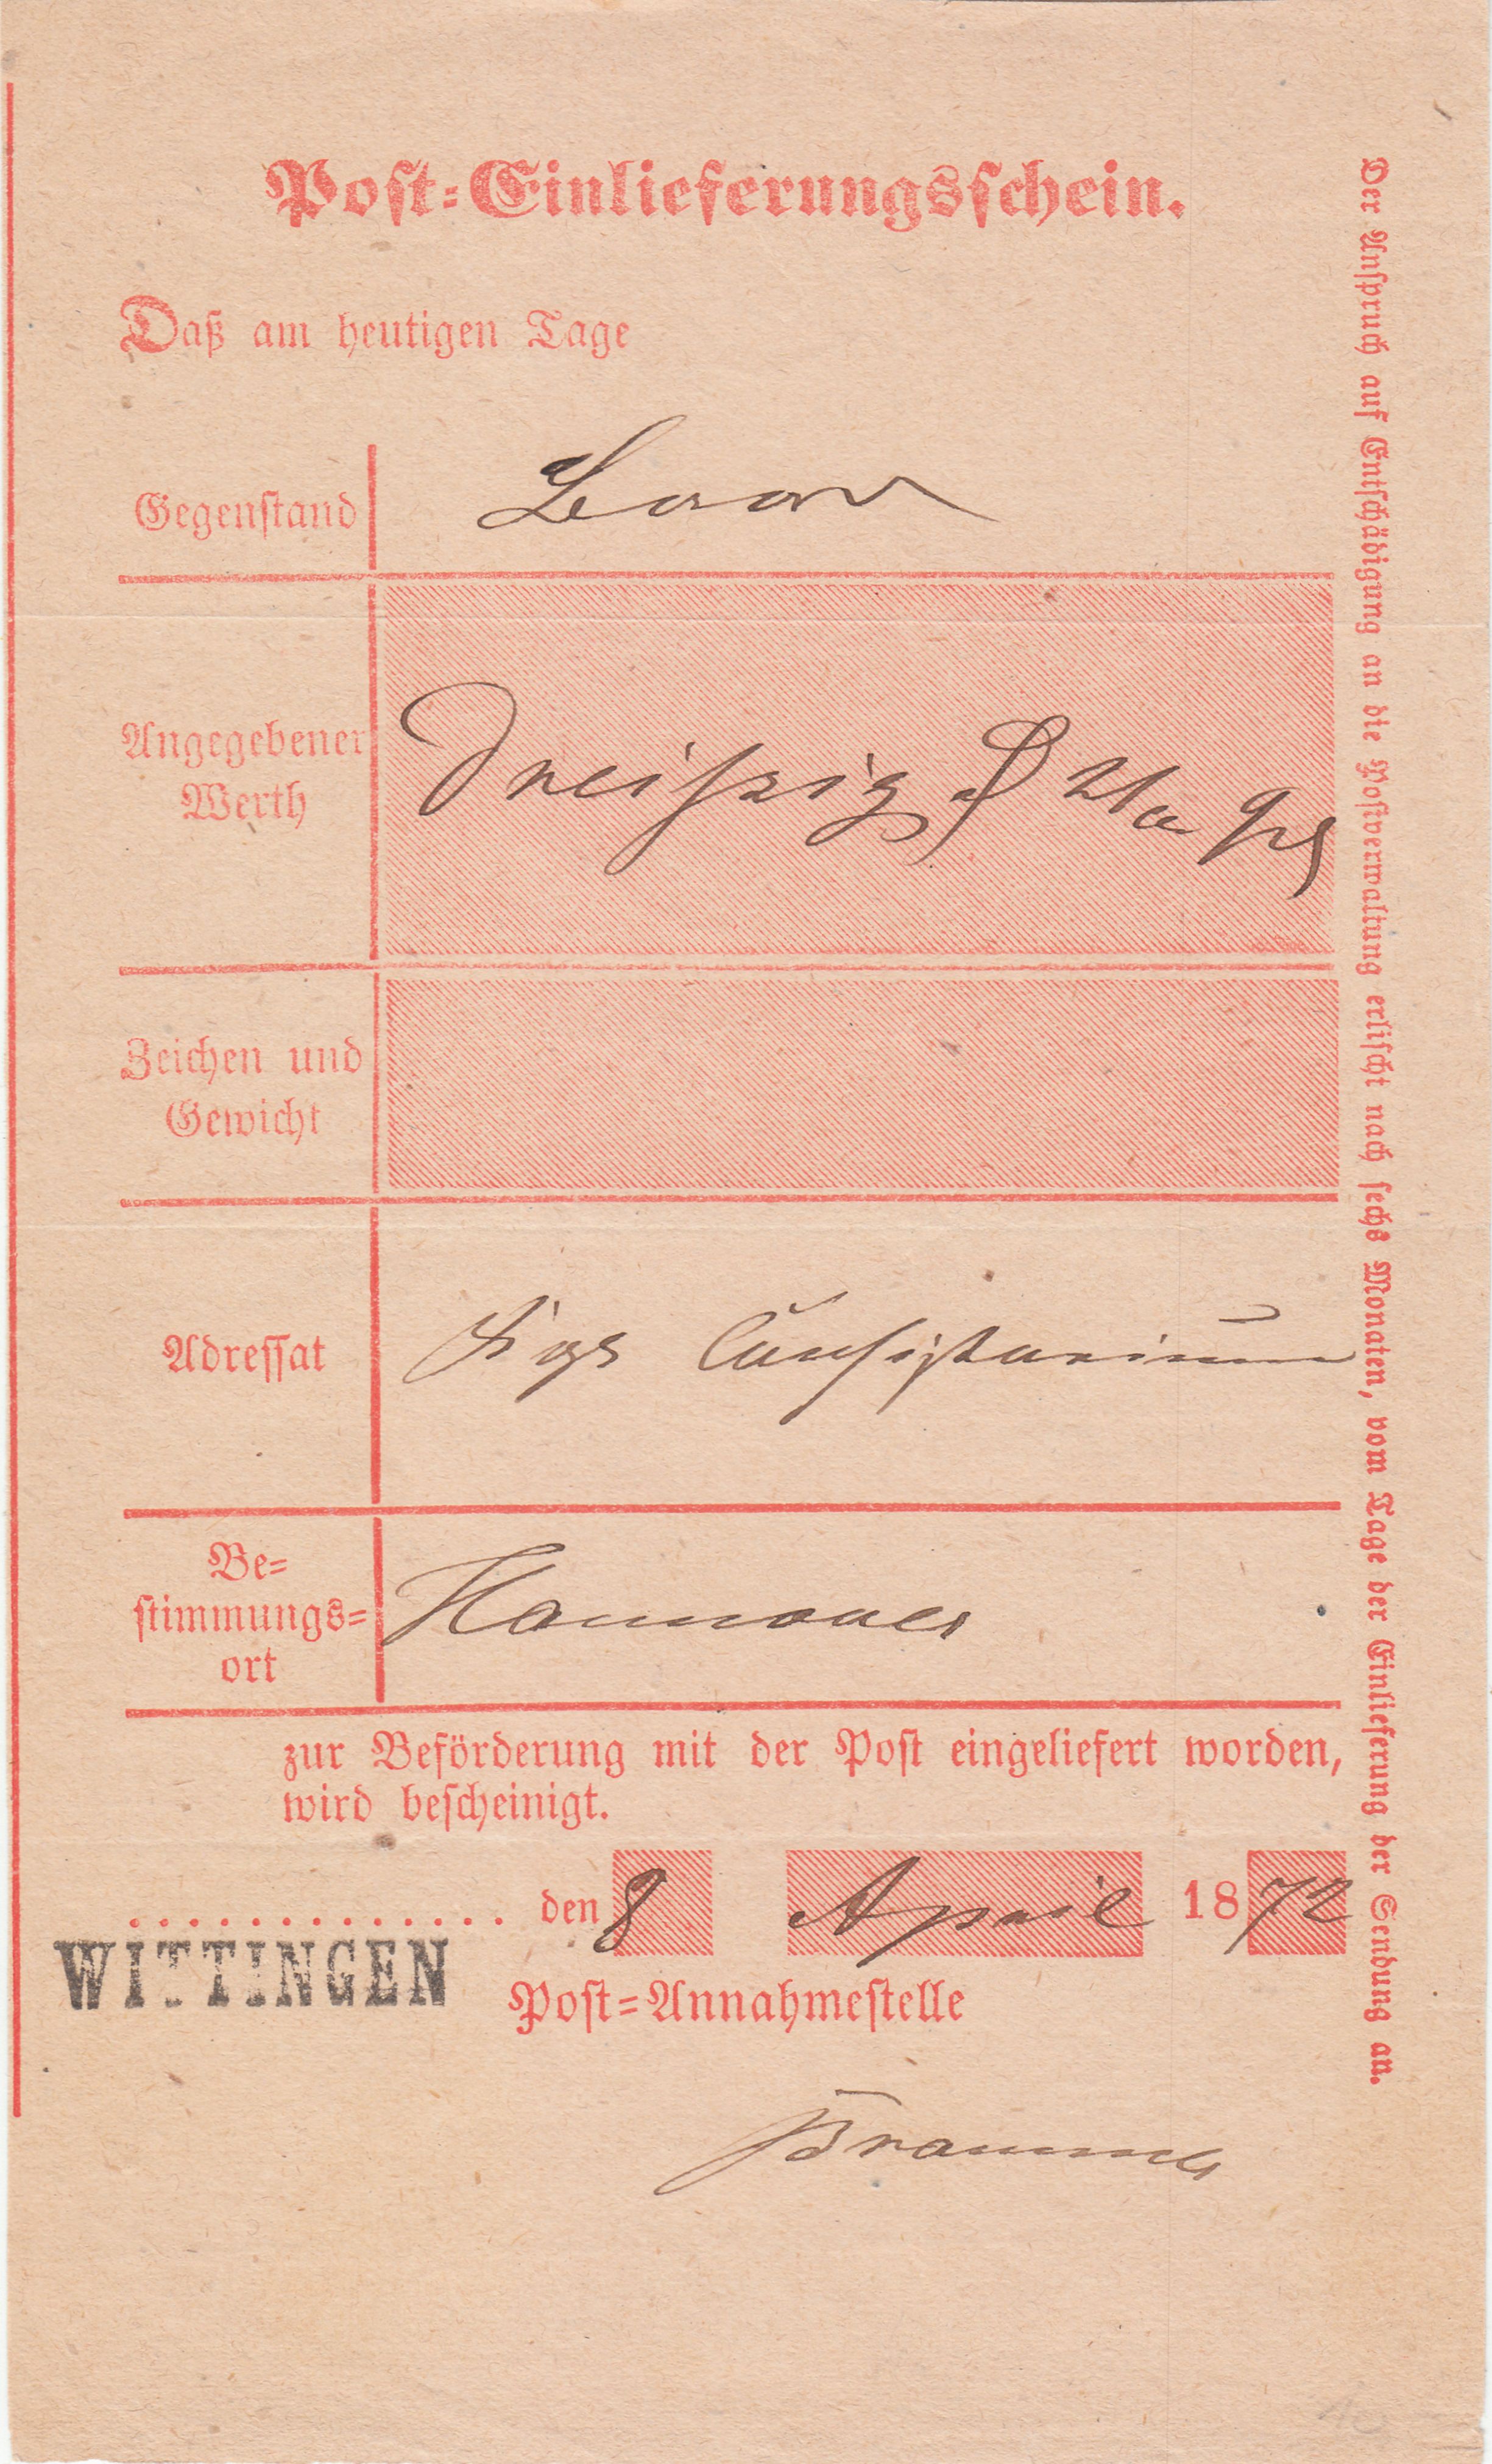 Post-Einlieferungsschein.
Daß am heutigen Tage
Gegenstand
Angegebener
Werth
Dreißig
Zeichen und
Gewicht
Adressat
Kgs Consistorium
Be-
stimmungs-
ort
Hannover
zur Beförderung mit der Post eingeliefert worden,
wird bescheinigt.
. . . . . . . . . . . . . den 8 April 1872
WITTINGEN
Post-Annahmestelle
Der Anspruch auf Entschädigung an die Postverwaltung erlischt nach sechs Monaten, vom Tage der Einlieferung der Sendung an.